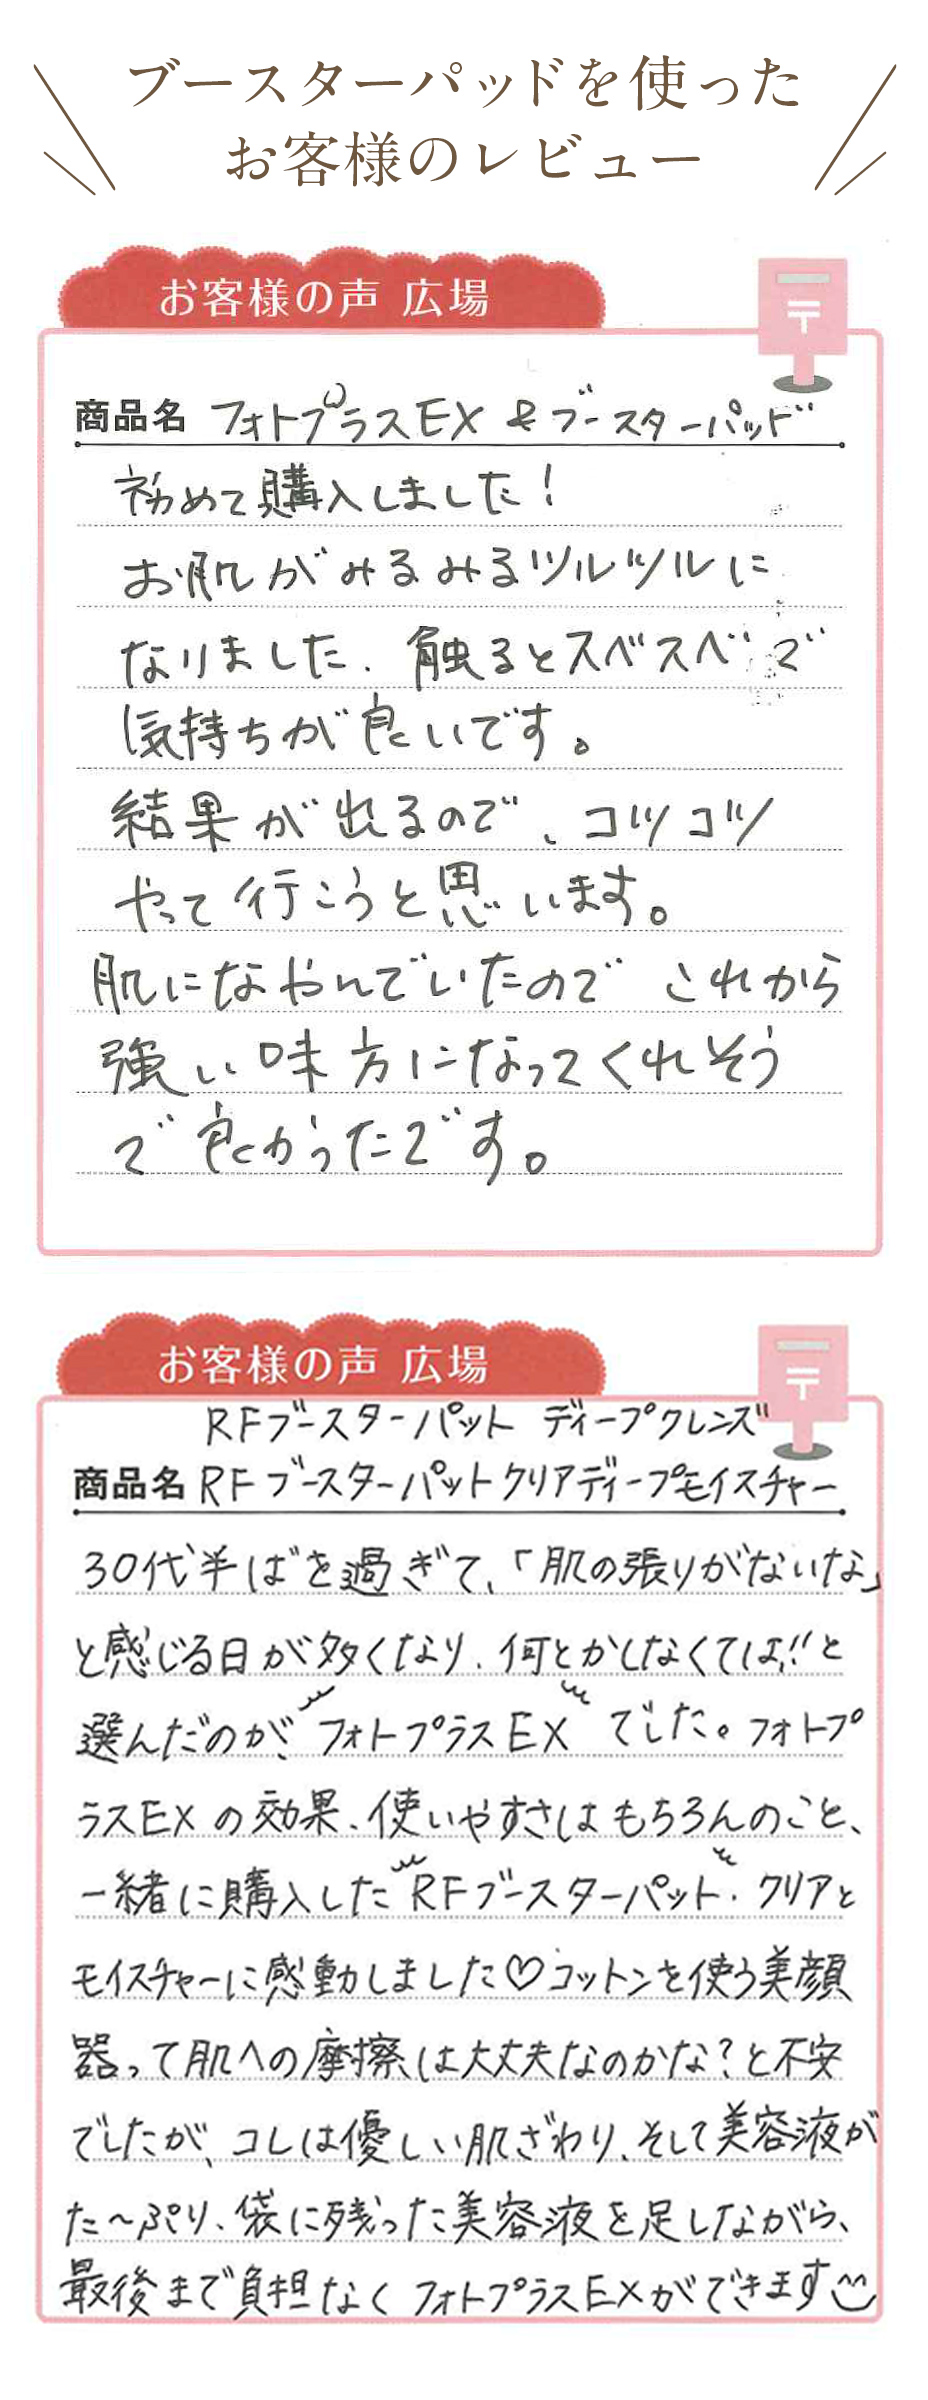 ブースターパッドを使った
お客様のレビュー
お客様の声 広場
商品名 フォトプラスEX &ブースターパッド
初めて購入しました!
お肌がみるみるツルツルに
なりました、触るとスベスベで
気持ちが良いです。
結果が出るので、コツコツ
やって行こうと思います。
肌になやんでいたので これから
強い味方になってくれそう
で良かったです。
お客様の声 広場
RFブースターパット ディープクレンズ
商品名 RFブースターパットクリアディープモイスチャー
30代半ばを過ぎて、「肌の張りがないな」
と感じる日が多くなり、何とかしなくては!!と
選んだのが フォトプラスEX でした。フォトプ
ラスEXの効果、使いやすさはもちろんのこと、
一緒に購入した RFブースターパット・クリアと
モイスチャーに感動しました♡コットンを使う美顔
器って肌への摩擦は大丈夫なのかな?と不安
でしたが、コレは優しい肌ざわり、そして美容液が
た〜ぷり、袋に残った美容液を足しながら、
最後まで負担なくフォトプラスEXができます